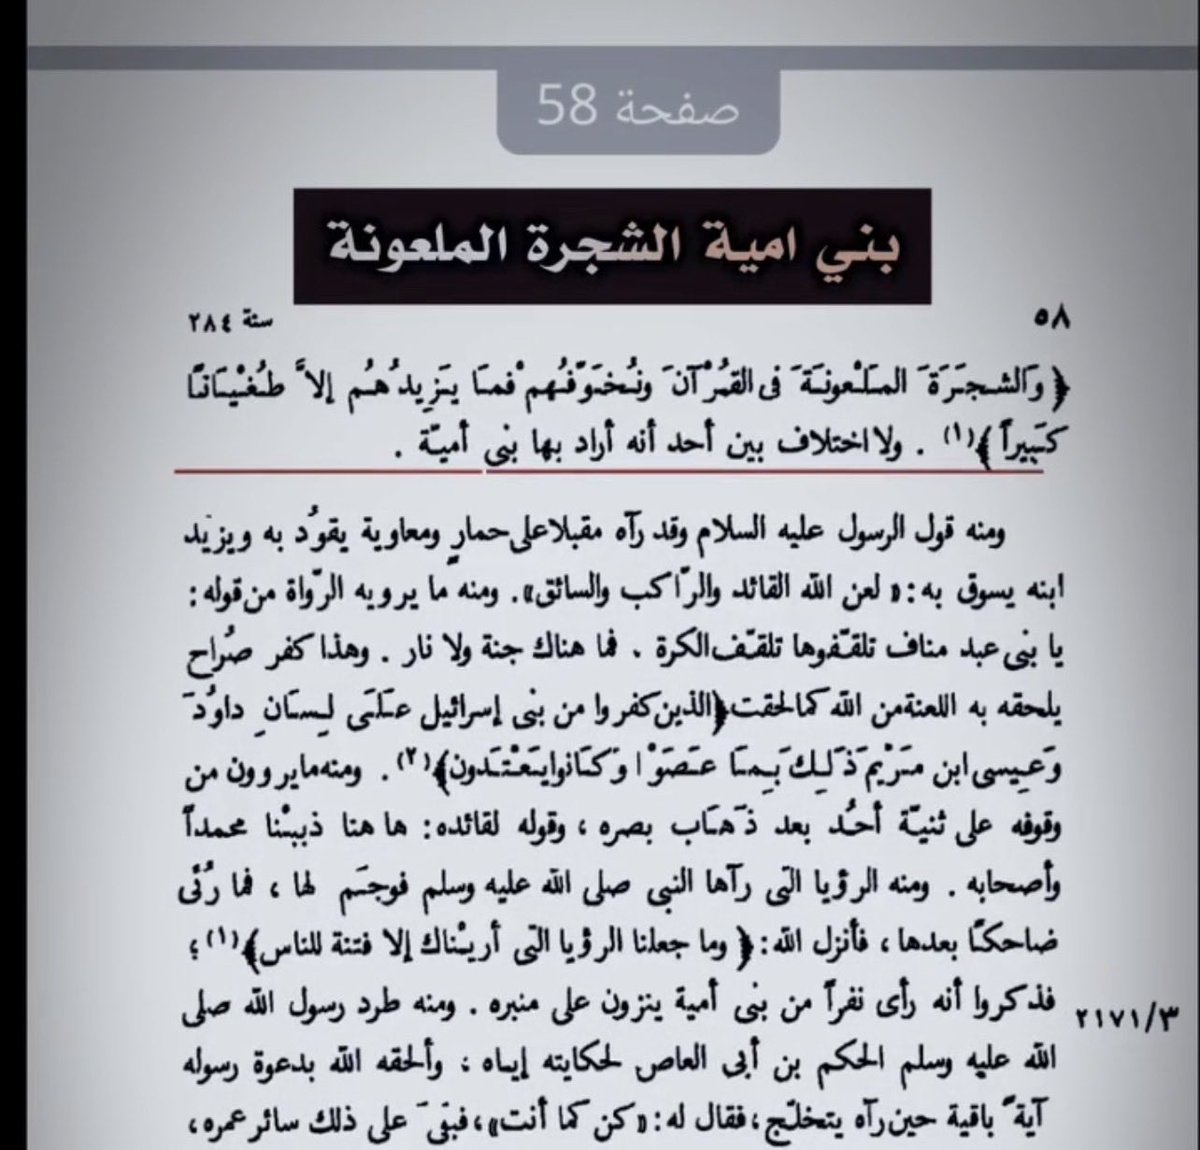 صفحة 58
بني امية الشجرة الملعونة
٥٨
سنة ٢٨٤
﴿ وَالشجَرَةَ المَلْعونَةَ فى القُرْآنَ ونُخَوّفُهمْ فمَا يَزِيدُهُم إلاَّ طُغْيَانًا
كَبيراً ﴾(١) . ولا اختلاف بين أحد أنه أراد بها بنى أميّة .
ومنه قول الرسول عليه السلام وقد رآه مقبلا على حمارٍ ومعاوية يقوُد به ويزيد
ابنه يسوق به : « لعن الله القائد والرّاكب والسائق». ومنه ما يرويه الرّواة من قوله :
يا بنى عبد مناف تلقّفوها تلقّف الكرة . فما هناك جنة ولا نار . وهذا كفر صُراح
يلحقه به اللعنة من الله كما لحقت ﴿ الذين كفروا من بنى إسرائيل عَلَى لِسَانِ داوُدَ
وَعِيسى ابن مَرْيم ذَلِكَ بِمَا عَصَوْا وَكَانوا يَعْتَدون﴾(٢) . ومنه ما يروون من
وقوفه على ثنيّة أحُد بعد ذَهَاب بصره ، وقوله لقائده : ها هنا ذببْنا محمداً
وأصحابه . ومنه الرؤيا التى رآها النبى صلى الله عليه وسلم فوجَم لها ، فما رُئى
ضاحكًا بعدها ، فأنزل الله : ﴿ وما جعلنا الرؤيا التى أريْناك إلا فتنة للناس﴾(١) ؛
فذكروا أنه رأى نفراً من بنى أمية ينزون على منبره . ومنه طرد رسول الله صلى
٢١٧١/٣
الله عليه وسلم الحكم بن أبى العاص لحكايته إياه ؛ وألحقه الله بدعوة رسوله
آيةً باقية حين رآه يتخلّج ، فقال له : « كن كما أنت»، فبقىَ على ذلك سائر عمره ،